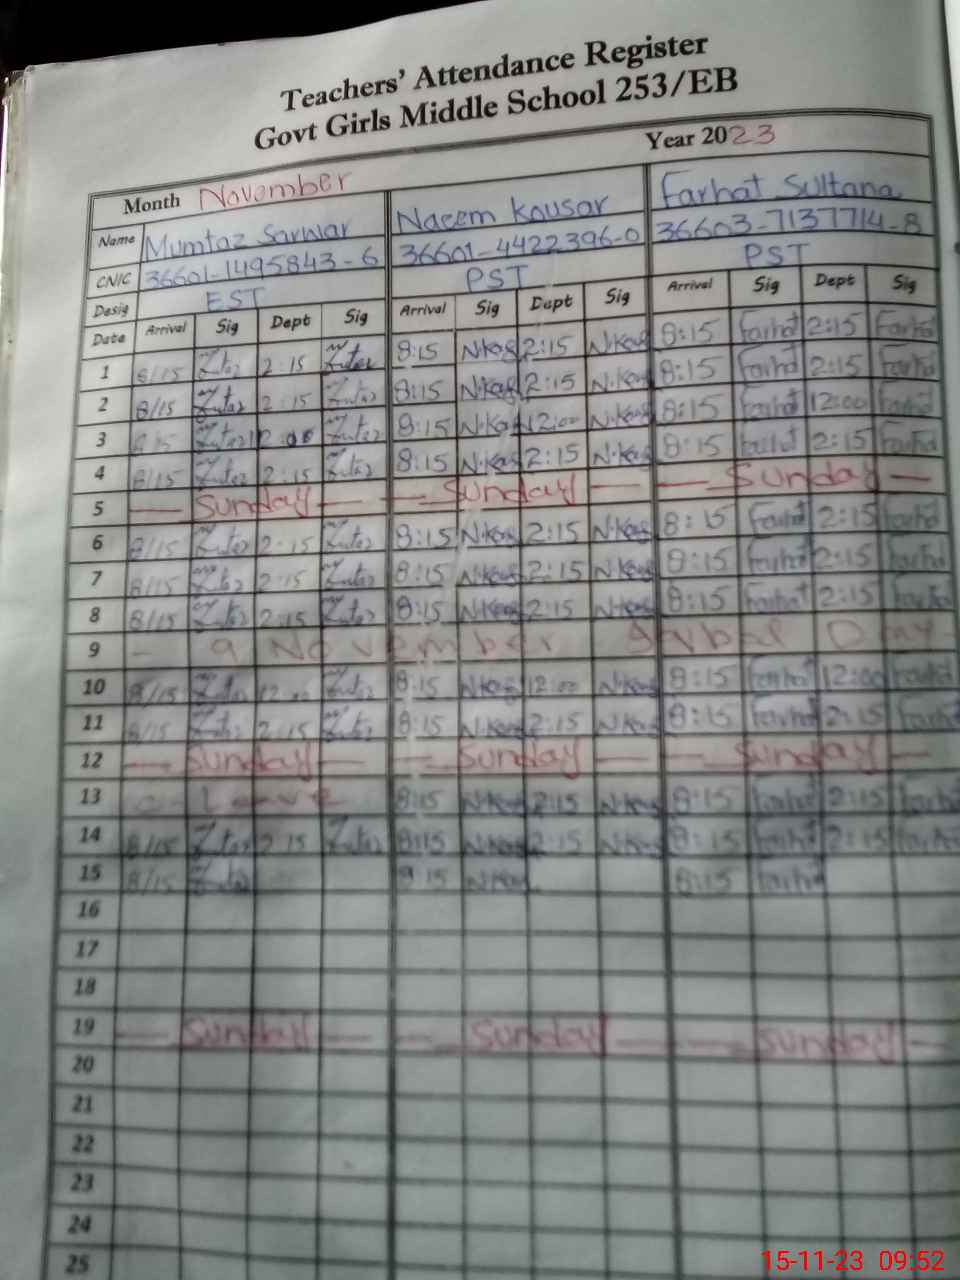 Teachers' Attendance Register
Govt Girls Middle School 253/EB
Year 2023
Month November
Name Mumtaz Sarwar Naeem Kousar Farhat Sultana
CNIC 36601-1495843-6 36601-4422396-0 36603-7137714-8
Desig EST PST PST
Date Arrival Sig Dept Sig Arrival Sig Dept Sig Arrival Sig Dept Sig
1 8/15 2:15 8:15 N.Kas 2:15 N.Kas 8:15 Farhat 2:15 Farhat
2 8/15 2:15 8:15 N.Kas 2:15 N.Kas 8:15 Farhat 2:15 Farhat
3 8/15 12:00 8:15 N.Kas 12:00 N.Kas 8:15 Farhat 12:00 Farhat
4 8/15 2:15 8:15 N.Kas 2:15 N.Kas 8:15 Farhat 2:15 Farhat
5 — Sunday — — Sunday — — Sunday —
6 8/15 2:15 8:15 N.Kas 2:15 N.Kas 8:15 Farhat 2:15 Farhat
7 8/15 2:15 8:15 N.Kas 2:15 N.Kas 8:15 Farhat 2:15 Farhat
8 8/15 2:15 8:15 N.Kas 2:15 N.Kas 8:15 Farhat 2:15 Farhat
9 - 9 November Day -
10 8/15 12:00 8:15 N.Kas 12:00 N.Kas 8:15 Farhat 12:00 Farhat
11 8/15 2:15 8:15 N.Kas 2:15 N.Kas 8:15 Farhat 2:15 Farhat
12 — Sunday — — Sunday — — Sunday —
13 Leave 8:15 N.Kas 2:15 N.Kas 8:15 Farhat 2:15 Farhat
14 8/15 2:15 8:15 N.Kas 2:15 N.Kas 8:15 Farhat 2:15 Farhat
15 8/15 8:15 N.Kas 8:15 Farhat
16
17
18
19 — Sunday — — Sunday — — Sunday —
20
21
22
23
24
25
15-11-23 09:52